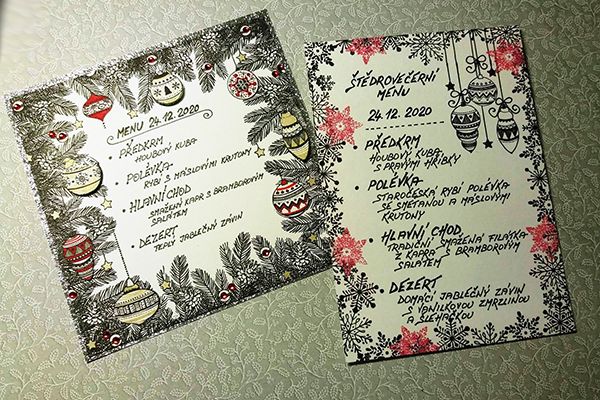 MENU 24.12.2020
• PŘEDKRM
HOUBOVÝ KUBA
• POLÉVKA
RYBÍ S MÁSLOVÝMI KRUTONY
• HLAVNÍ CHOD
SMAŽENÝ KAPR S BRAMBOROVÝM
SALÁTEM
• DEZERT
TEPLÝ JABLEČNÝ ZÁVIN
ŠTĚDROVEČERNÍ
MENU
24.12.2020
• PŘEDKRM
HOUBOVÝ KUBA
S PRAVÝMI HŘÍBKY
• POLÉVKA
STAROČESKÁ RYBÍ POLÉVKA
SE SMETANOU A MÁSLOVÝMI
KRUTONY
• HLAVNÍ CHOD
TRADIČNÍ SMAŽENÁ FILÁTKA
Z KAPRA S BRAMBOROVÝM
SALÁTEM
• DEZERT
DOMÁCÍ JABLEČNÝ ZÁVIN
S VANILKOVOU ZMRZLINOU
A ŠLEHAČKOU